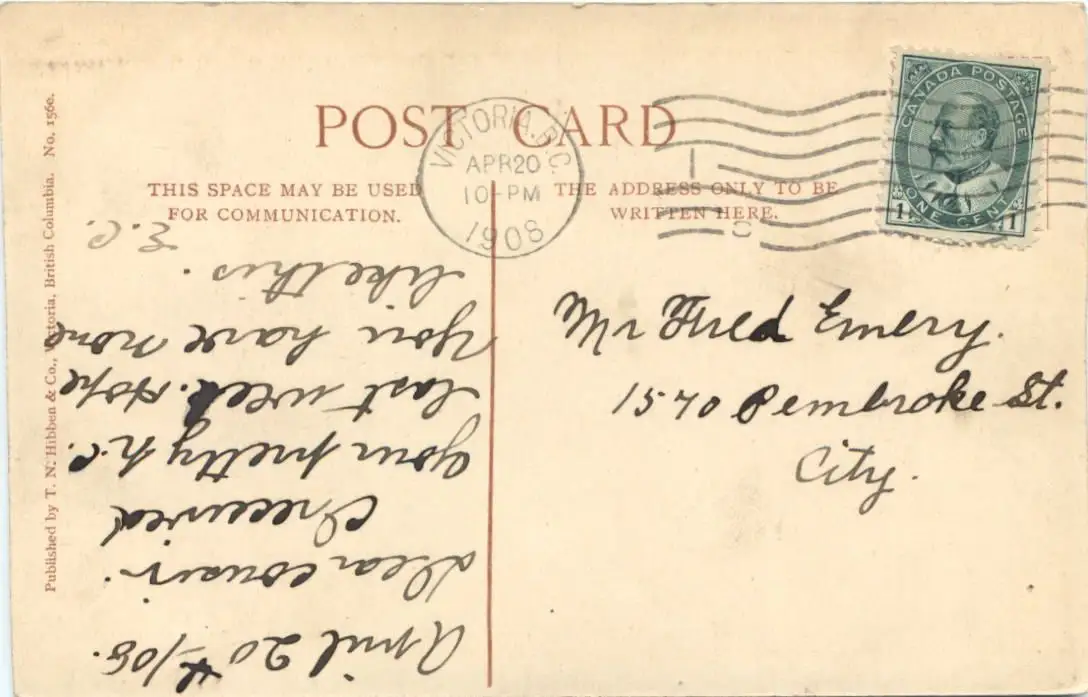 POST CARD
THIS SPACE MAY BE USED
FOR COMMUNICATION.
THE ADDRESS ONLY TO BE
WRITTEN HERE.
VICTORIA, B.C.
APR 20
10-PM
1908
CANADA POSTAGE
1 ONE CENT 1
Mr Fred Emery.
1570 Pembroke St.
City.
April 20th/08.
Dear cousin.
I received
your pretty p.c.
last week. Hope
you have none
like this.
E.C.
Published by T. N. Hibben & Co., Victoria, British Columbia. No. 1560.